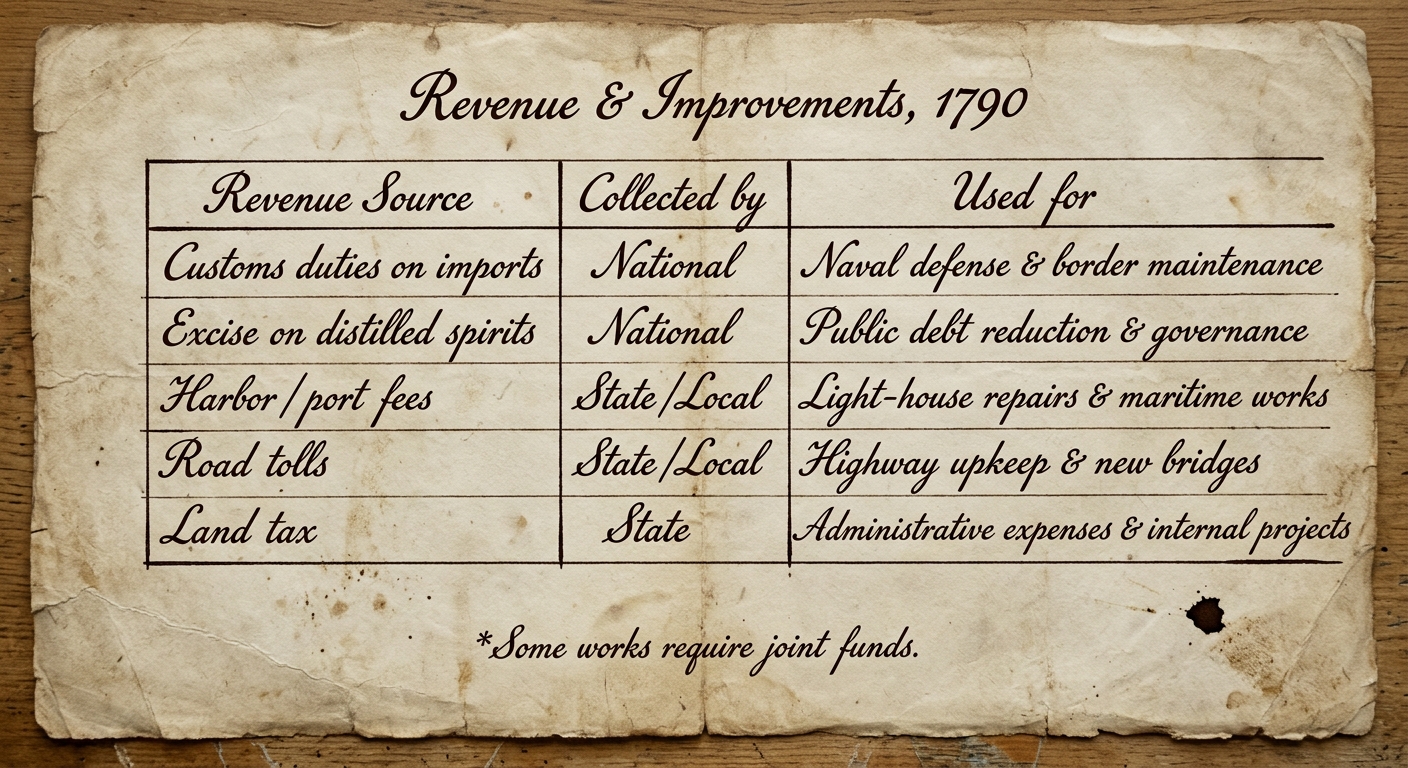 Revenue & Improvements, 1790
Revenue Source Collected by Used for
Customs duties on imports National Naval defense & border maintenance
Excise on distilled spirits National Public debt reduction & governance
Harbor/port fees State/Local Light-house repairs & maritime works
Road tolls State/Local Highway upkeep & new bridges
Land tax State Administrative expenses & internal projects
*Some works require joint funds.